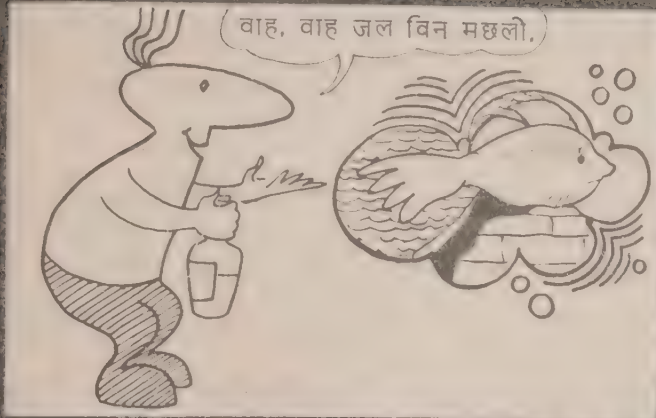 वाह, वाह जल विन मछलो,